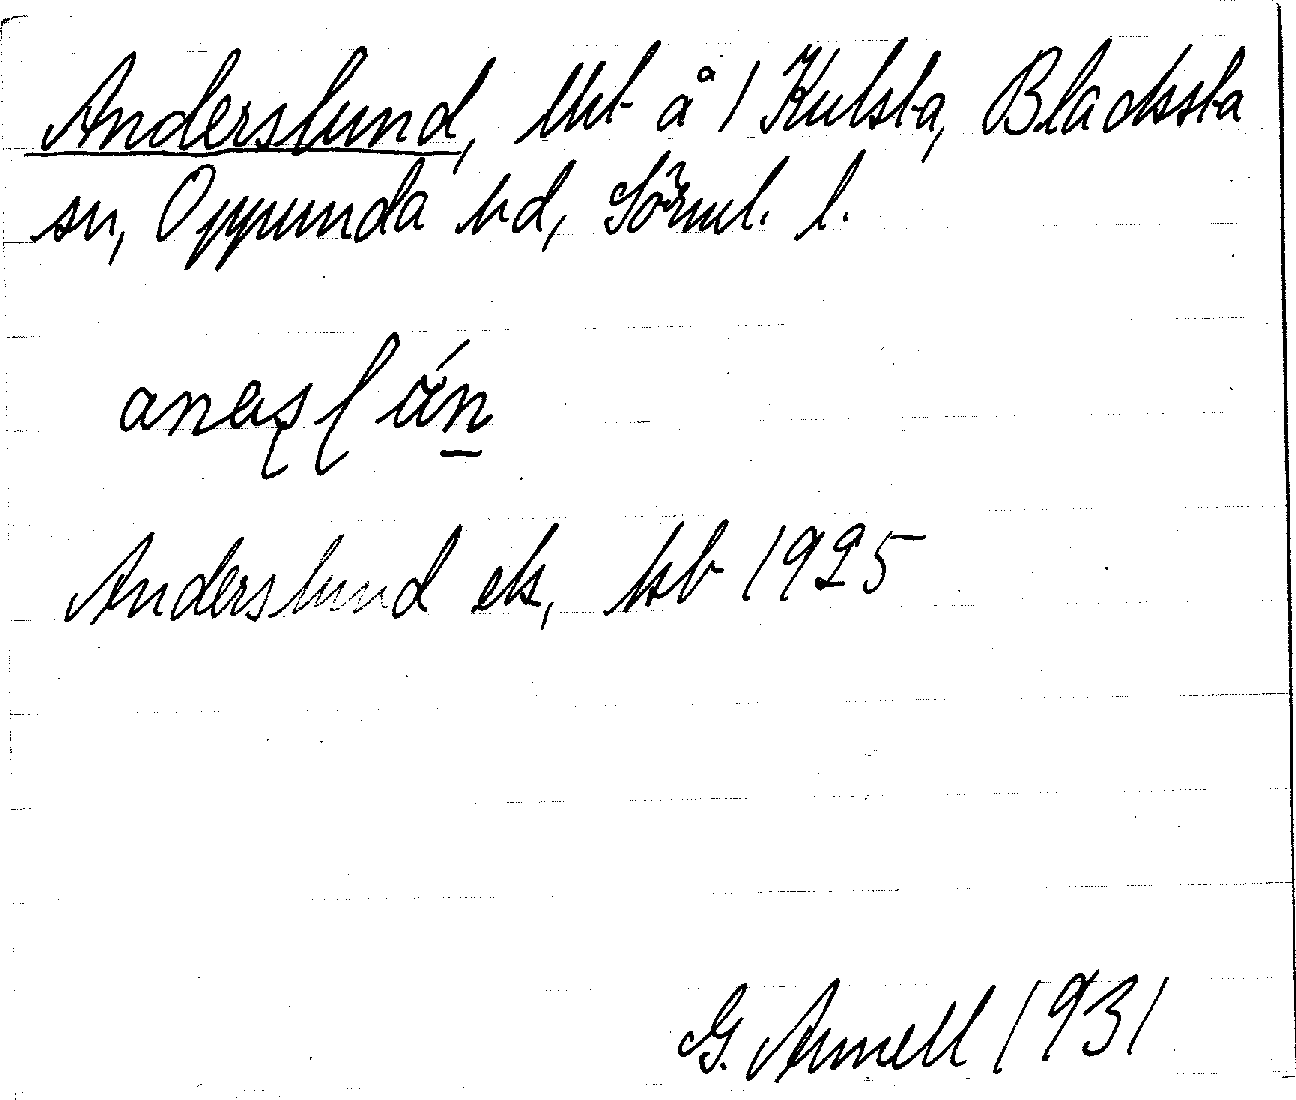 Anderslund, lht å 1 Kulsta, Blacksta
sn, Oppunda hd, Sörml. l.
Anderslund ek, kb 1925
G. Arnell 1931